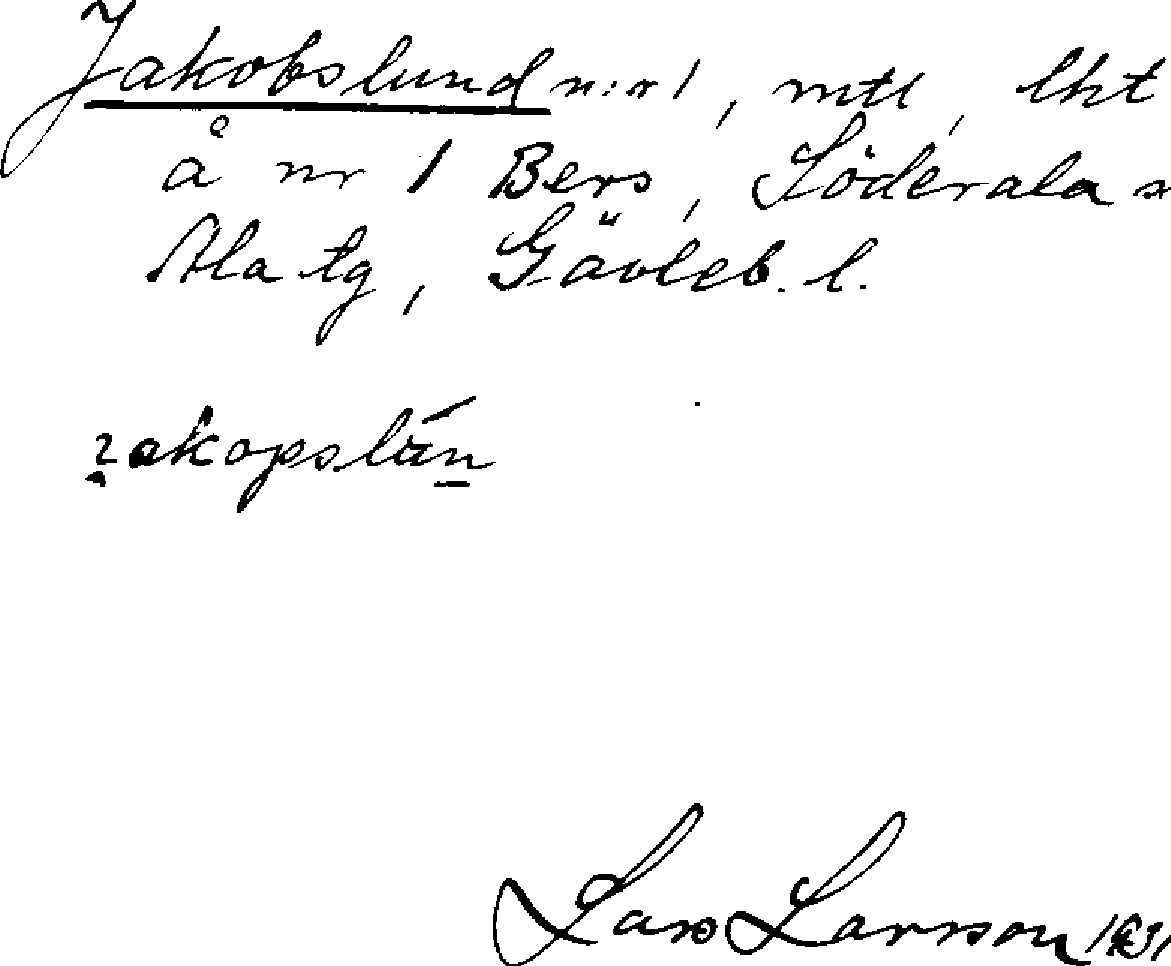 Jakobslund n:r 1, mtl, lht
å nr 1 Bers, Söderala s
Ala tg, Gävleb. l.
Lars Larsson 1931